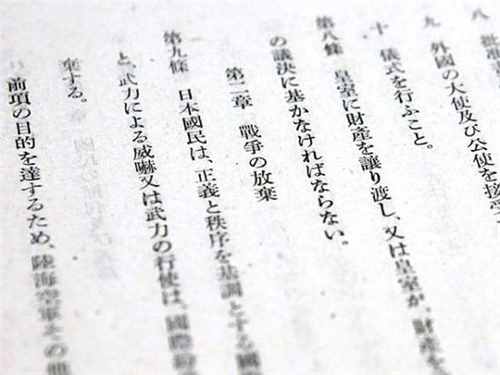 八 批准
九 外國の大使及び公使を接受
十 儀式を行ふこと。
第八條 皇室に財產を讓り渡し、又は皇室が、財產を
の議決に基かなければならない。
第二章 戰爭の放棄
第九條 日本國民は、正義と秩序を基調とする國
と、武力による威嚇又は武力の行使は、國際紛
棄する。
前項の目的を達するため、陸海空軍その他